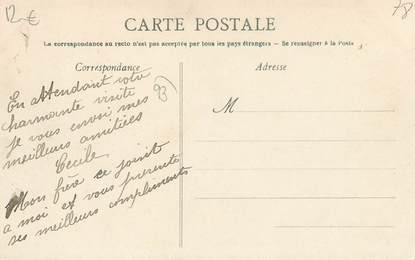 12 €
78
CARTE POSTALE
La correspondance au recto n'est pas acceptée par tous les pays étrangers — Se renseigner à la Poste
Correspondance
Adresse
En attendant votre
charmante visite
je vous envoi mes
meilleurs amitiées
Cecile
Mon frère ce joint
a moi et vous presente
ses meilleurs compliments
93
M